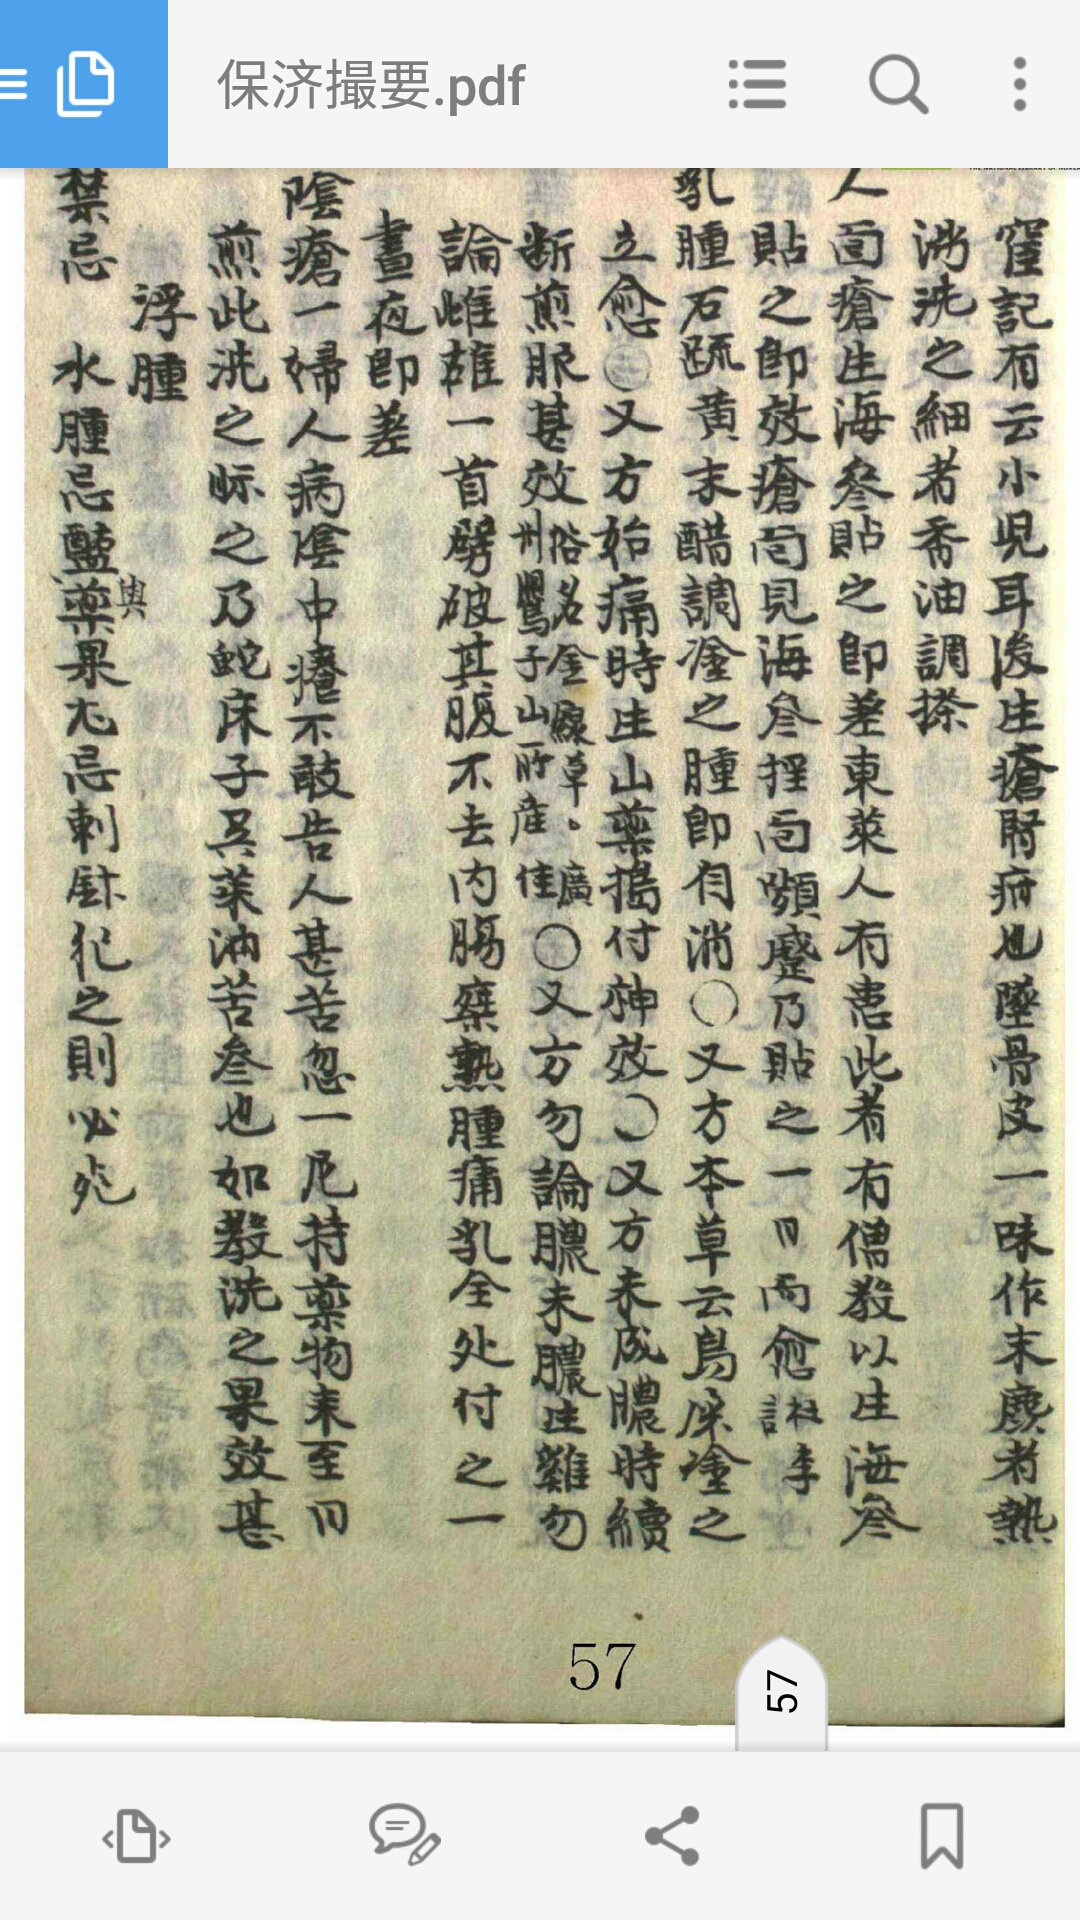 保济撮要.pdf
窪記有云小児耳後生瘡腎疳也墜骨皮一味作末麄者熱
湯洗之細者香油調搽
人面瘡生海參貼之即差東萊人有患此者有僧教以生海參
貼之即效瘡面見海參揑而嚬蹙乃貼之一日而愈
李社
乳腫石硫黄末醋調塗之腫即自消〇又方本草云鳥屎塗之
立愈〇又方始痛時生山藥搗付神效〇又方未成膿時續
断煎服甚效
俗名金線草。廣
州鸎子山所産佳
〇又方勿論膿未膿生雞勿
論雌雄一首劈破其腹不去内腸窠熟腫痛乳全处付之一
晝夜即差
陰瘡一婦人病陰中癢不敢告人甚苦忽一尼持藥物来至曰
煎此洗之眎之乃蛇床子吳茱萸苦參也如教洗之果效甚
浮腫
禁忌 水腫忌鹽藥果尤忌刺鉥犯之則必死
與
57
57